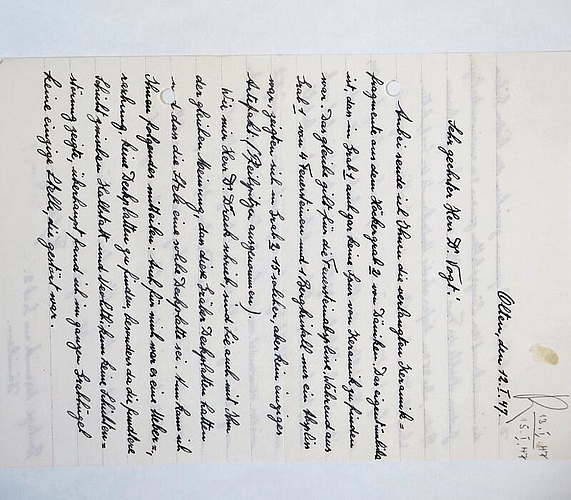 Olten, den 12. I. 47.
R 13. I. 47
15. I. 47
Sehr geehrter Herr Dr Vogt!
Anbei sende ich Ihnen die verlangten Keramik=
fragmente aus dem Hockergrab 2 von Däniken. Das eigentümliche
ist, dass in Grab 1 auch gar keine Spur von Keramik zu finden
war. Das gleiche gilt für die Feuersteinabsplisse. Während aus
Grab 1 von 4 Feuersteinen und 1 Bergkristall nur ein Absplis
war, zeigten sich in Grab 2 15 solcher, aber kein einziges
Artefakt (Pfeilspitzen ausgenommen)
Wie mir Herr Dr. schrieb, sind Sie auch mit Ihm
der gleichen Meinung, dass diese Gräber Deckplatten hatten
und dass die Stele eine solche Deckplatte sei. Nun kann ich
Ihnen folgendes mitteilen. Auch für mich war es eine Ueber=
raschung, keine Deckplatten zu finden, besonders da die fundleere
Schicht zwischen Hallstatt und Neolithikum keine Schichten=
störung zeigte, überhaupt fand ich im ganzen Grabhügel
keine einzige Stelle, die gestört war.